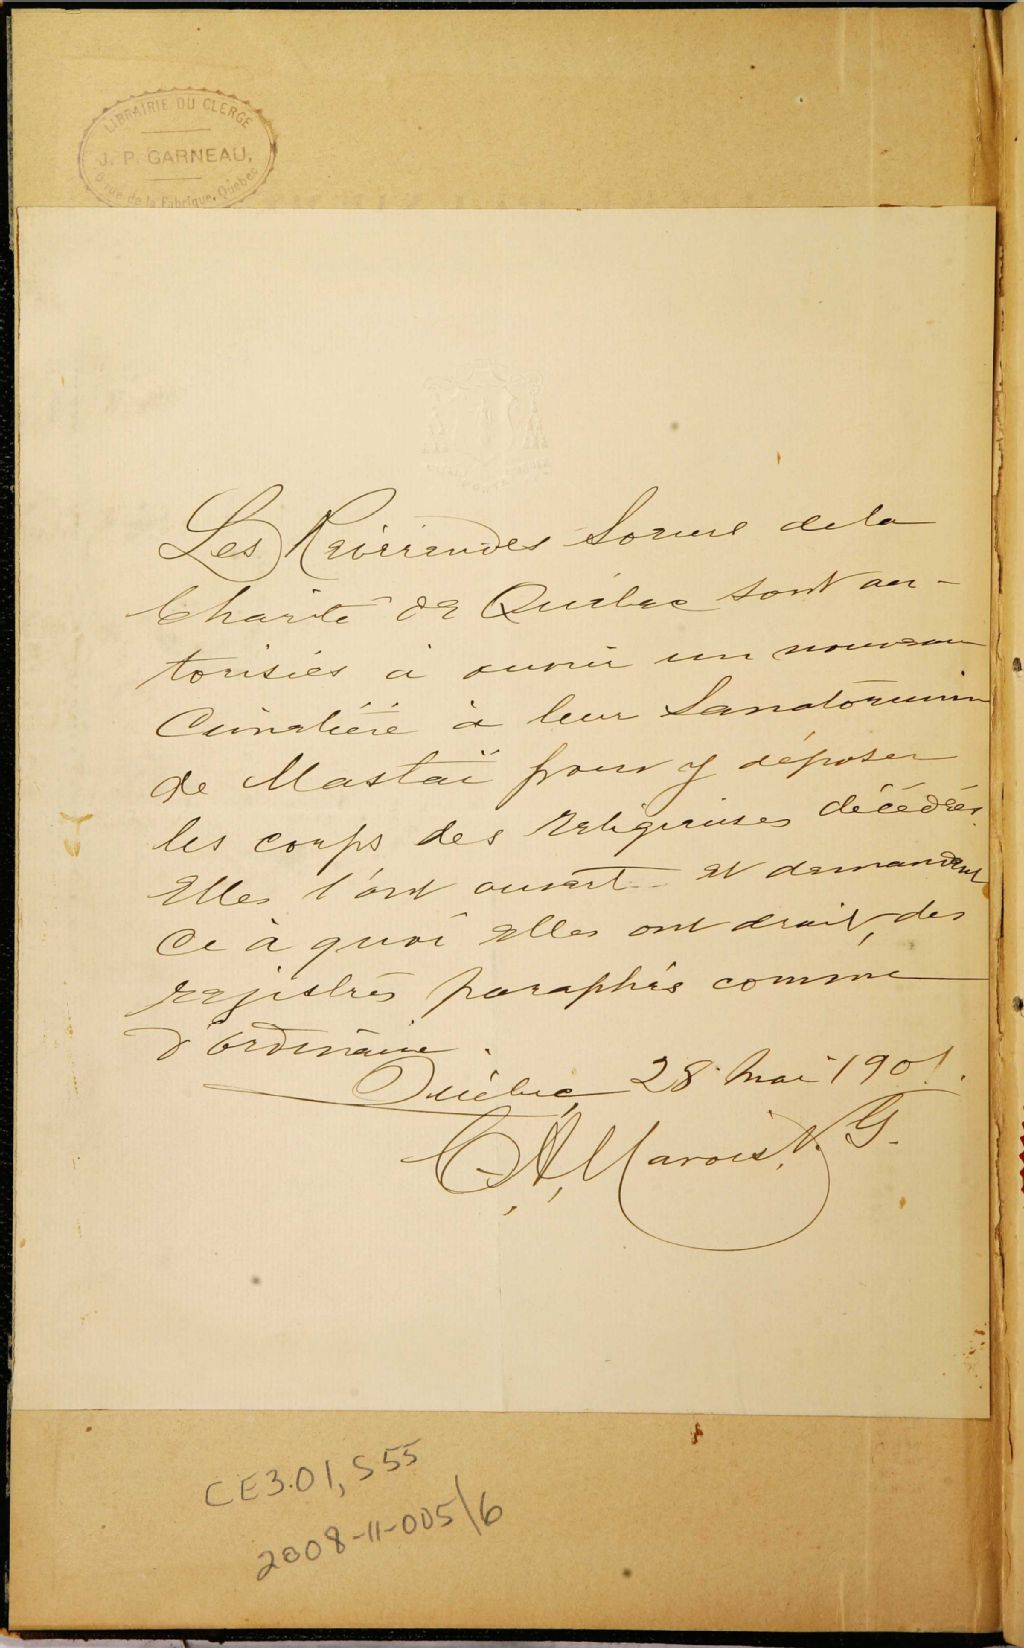 LIBRAIRIE DU CLERGE
J. P. GARNEAU,
6 rue de la Fabrique, Québec
Les Révérendes Soeurs de la
Charité de Québec sont au-
torisées à ouvrir un nouveau
Cimetière à leur Sanatorium
de Mastaï pour y déposer
les corps des religieuses décédées.
Elles l'ont ouvert et demandent
ce à quoi elles ont droit, des
registres paraphés comme
d'ordinaire.
Québec, 28 Mai 1901.
C. A. Marois, V. G.
CE3.01, S55
2008-11-005\6